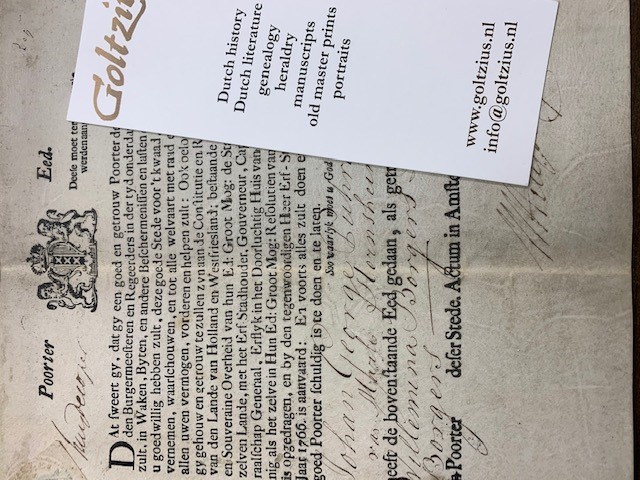 Goltziu
Dutch history
Dutch literature
genealogy
heraldry
manuscripts
old master prints
portraits
www.goltzius.nl
info@goltzius.nl
Poorter Eed.
Deese moet ter
werden aan
DAt sweert gy, dat gy een goed en getrouw Poorter de
den Burgermeesteren en Regeerders in der tyd onderda
zult, in Waken, Byten, en andere Beschermenissen en lasten
u goedwillig hebben zult, deze goede Stede voor 't kwaad
vernemen, waarschouwen, en tot alle welvaart met raad e
allen uwen vermogen, vorderen en helpen zult: Ook belo
gy gehouw en getrouw te zullen zyn aan de Constitutie en R
van den Lande van Holland en Westfriesland; bestaande
en Souveraine Overheid van hun Ed: Groot Mog: de St
zelven Lande, met het Erf-Stadhouder, Gouverneur, Cap
raalschap Generaal, Erflyk in het Doorluchtig Huis van
nig als het zelve in Hun Ed: Groot Mog: Resolutien van
is opgedragen, en by den tegenwoordigen Heer Erf-S
Jaar 1766. is aanvaard: En voorts alles zult doen e
goed Poorter schuldig is te doen en te laten.
Soo waarlyk moet u God
Johan George
heeft de bovenstaande Eed gedaan, als get
Willemina Borgers
Borgers
Poorter deser Stede. Actum in Amste